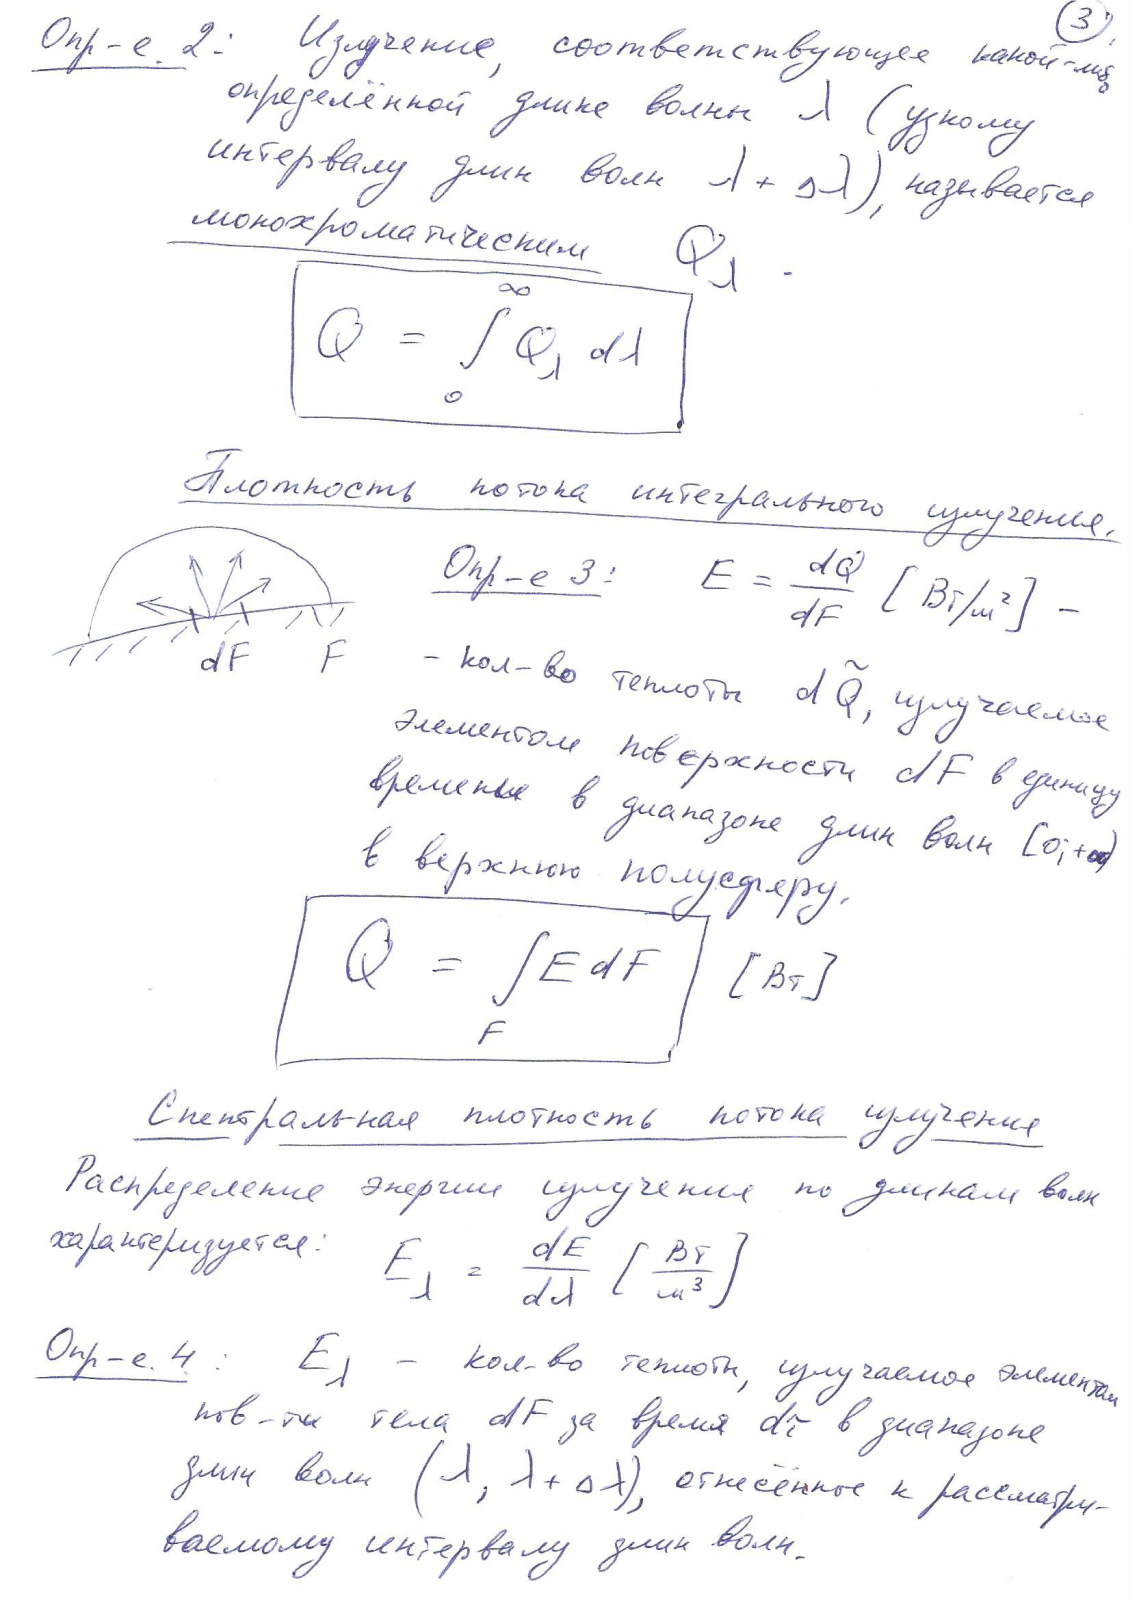 3
Опр-е. 2: Излучение, соответствующее какой-либо
определённой длине волны λ (узкому
интервалу длин волн λ + Δλ), называется
монохроматическим Q_λ.
Q = ∫_0^∞ Q_λ dλ
Плотность потока интегрального излучения.
Опр-е 3: E = dQ/dF [Вт/м²] –
dF F
– кол-во теплоты dQ̃, излучаемое
элементом поверхности dF в единицу
времени в диапазоне длин волн [0; +∞)
в верхнюю полусферу.
Q = ∫_F E dF [Вт]
Спектральная плотность потока излучения
Распределение энергии излучения по длинам волн
характеризуется: E_λ = dE/dλ [Вт/м³]
Опр-е. 4: E_λ – кол-во теплоты, излучаемое элементом
пов-ти тела dF за время dτ в диапазоне
длин волн (λ, λ + Δλ), отнесённое к рассматри-
ваемому интервалу длин волн.